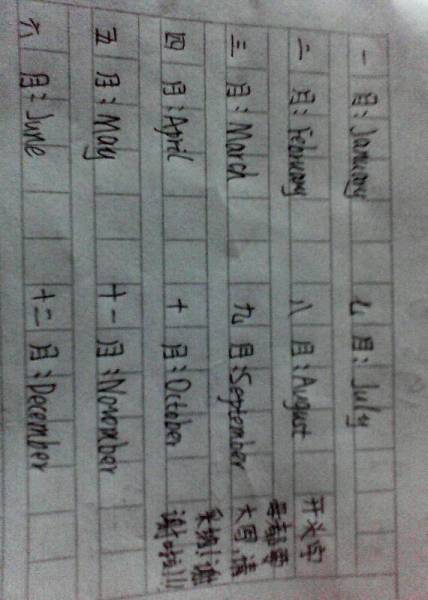 一月：January 七月：July
二月：February 八月：August
三月：March 九月：September
四月：April 十月：October
五月：May 十一月：November
六月：June 十二月：December
开头字
母都要
大写,请
采纳！谢
谢啦!!!